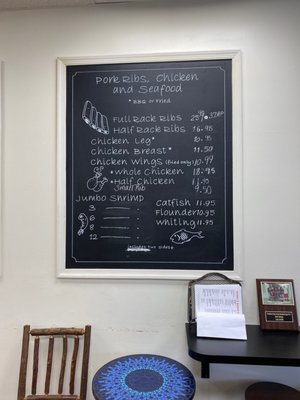 Pork Ribs, Chicken
and Seafood
* BBQ or Fried
Full Rack Ribs
Half Rack Ribs 16.95
Chicken Leg*
Chicken Breast* 11.50
Chicken Wings (fried only) 10.99
*Whole Chicken 18.95
*Half Chicken
9.50
Jumbo Shrimp
3
6
8
12
Catfish 11.95
Flounder 10.95
Whiting 11.95
includes two sides